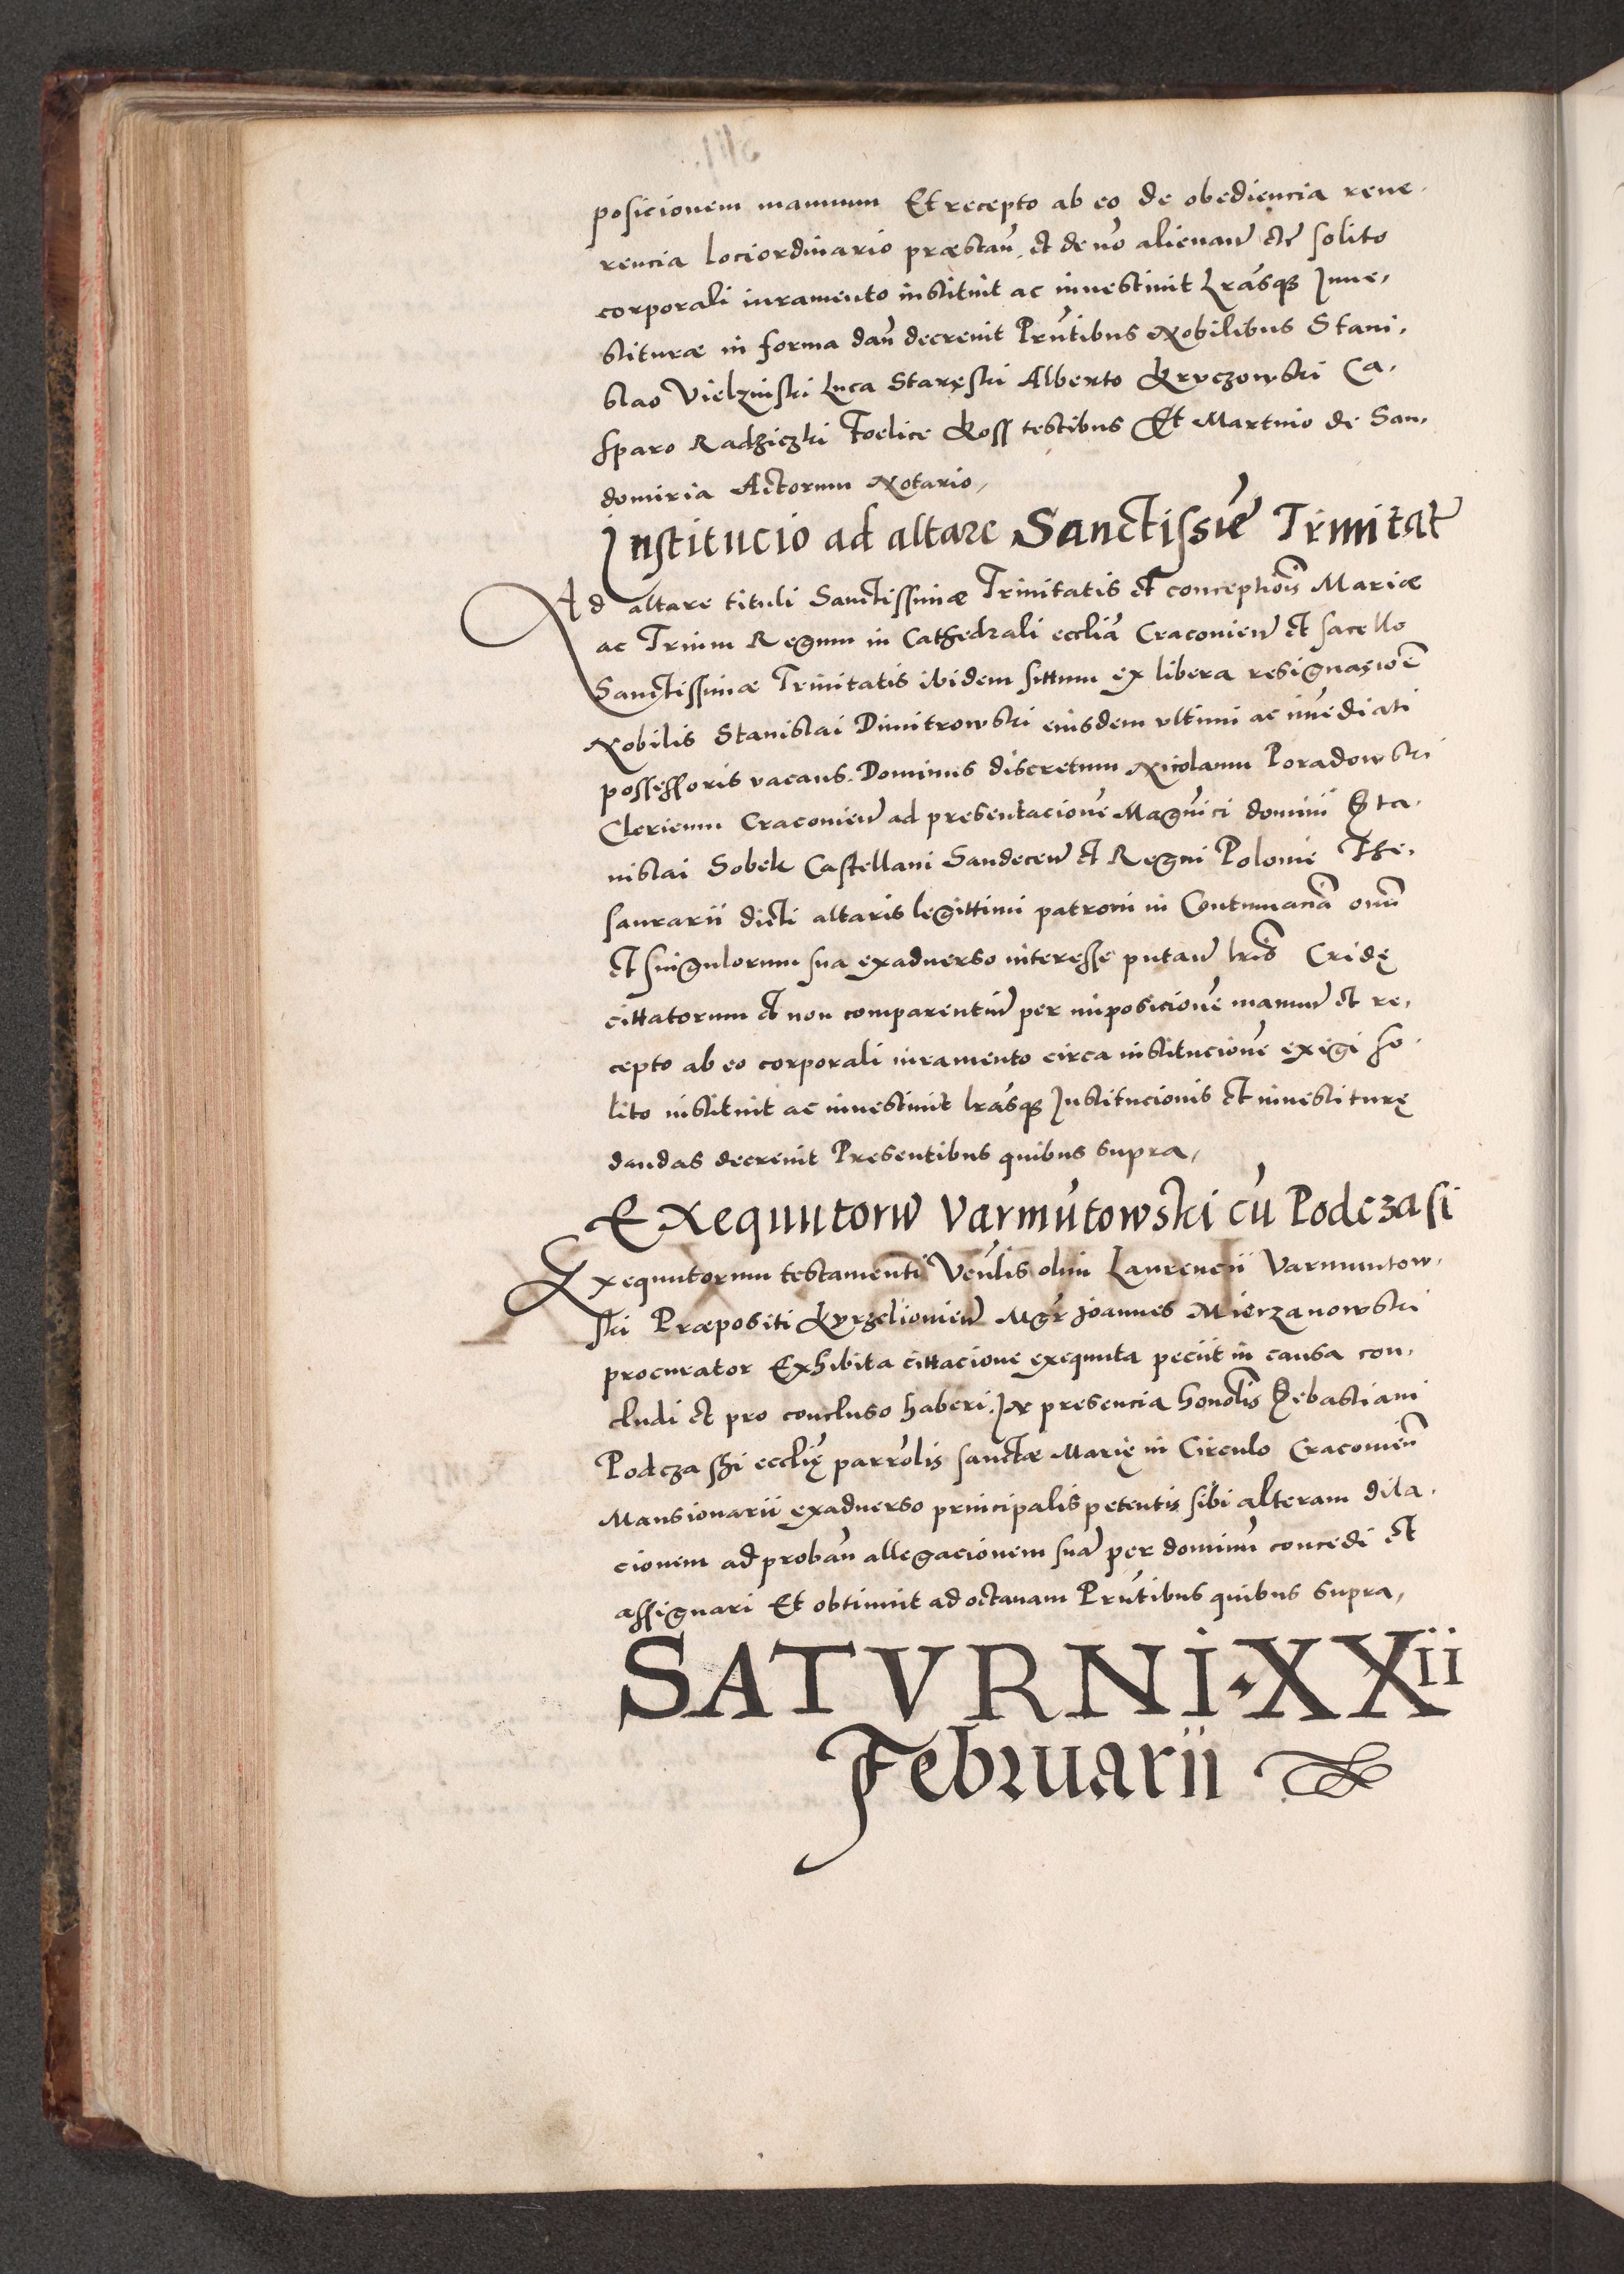 posicionem manuum Et recepto ab eo de obediencia reve,
rencia lociordinario præstan̄ et de nō alienan̄ etc̄ solito
corporali iuramento instituit ac investivit Lrāsq₃ Inve,
stituræ in forma dan̄ decrevit Prn̄tibus Nobilibus Stani,
slao Vielzinski Luca Staręski Alberto Kryczowski Ca,
sparo Radziczki Foelice Koss testibus Et Martino de San,
domiria Actorum Notario,
Institucio ad altare Sanctissīe Trinitat̄
Ad altare tituli Sanctissimæ Trinitatis et conceptiōis Mariæ
ac Trium Regum in Cathedrali eccliā Cracovien̄ et sacello
Sanctissimæ Trinitatis ibidem sittum ex libera resignaciōe
Nobilis Stanislai Dimitrowski eiusdem ultimi ac im̄ediati
possessoris vacans. Dominus discretum Nicolaum Poradowski
Clericum Cracovien̄ ad presentacionē Magn̄ici domini Sta,
nislai Sobek Castellani Sandecen̄ et Regni Polonie The,
saurarii dicti altaris legittimi patroni in Contumaciā oīm̄
et singulorum sua exadverso interesse putan̄ lrīs Cridę
cittatorum et non comparentiū per imposicionē manuū et re,
cepto ab eo corporali iuramento circa institucionē exigi so,
lito instituit ac investivit lrāsq₃ Institucionis et investiturę
dandas decrevit Presentibus quibus supra,
EXequutorū Varmūtowski cū Podczasi
Exequutorum testamenti Ven̄lis olim Laurencii Varmuntow,
ski Præpositi Kyrzelovien̄ Mgr̄ Joannes Mierzanowski
procurator Exhibita cittacione exequuta peciit in causa con,
cludi et pro concluso haberi. In presencia honōlis Sebastiani
Podczaski ecclię parrōlis sanctæ Marię in Circulo Cracovien̄
Mansionarii exadverso principalis petentis sibi alteram dila,
cionem ad proban̄ allegacionem suā per dominū concedi et
assignari Et obtinuit ad octavam Prn̄tibus quibus supra,
SATVRNI·XXii
Februarii